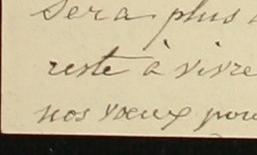 sera plus
reste à vivre
nos vœux pour